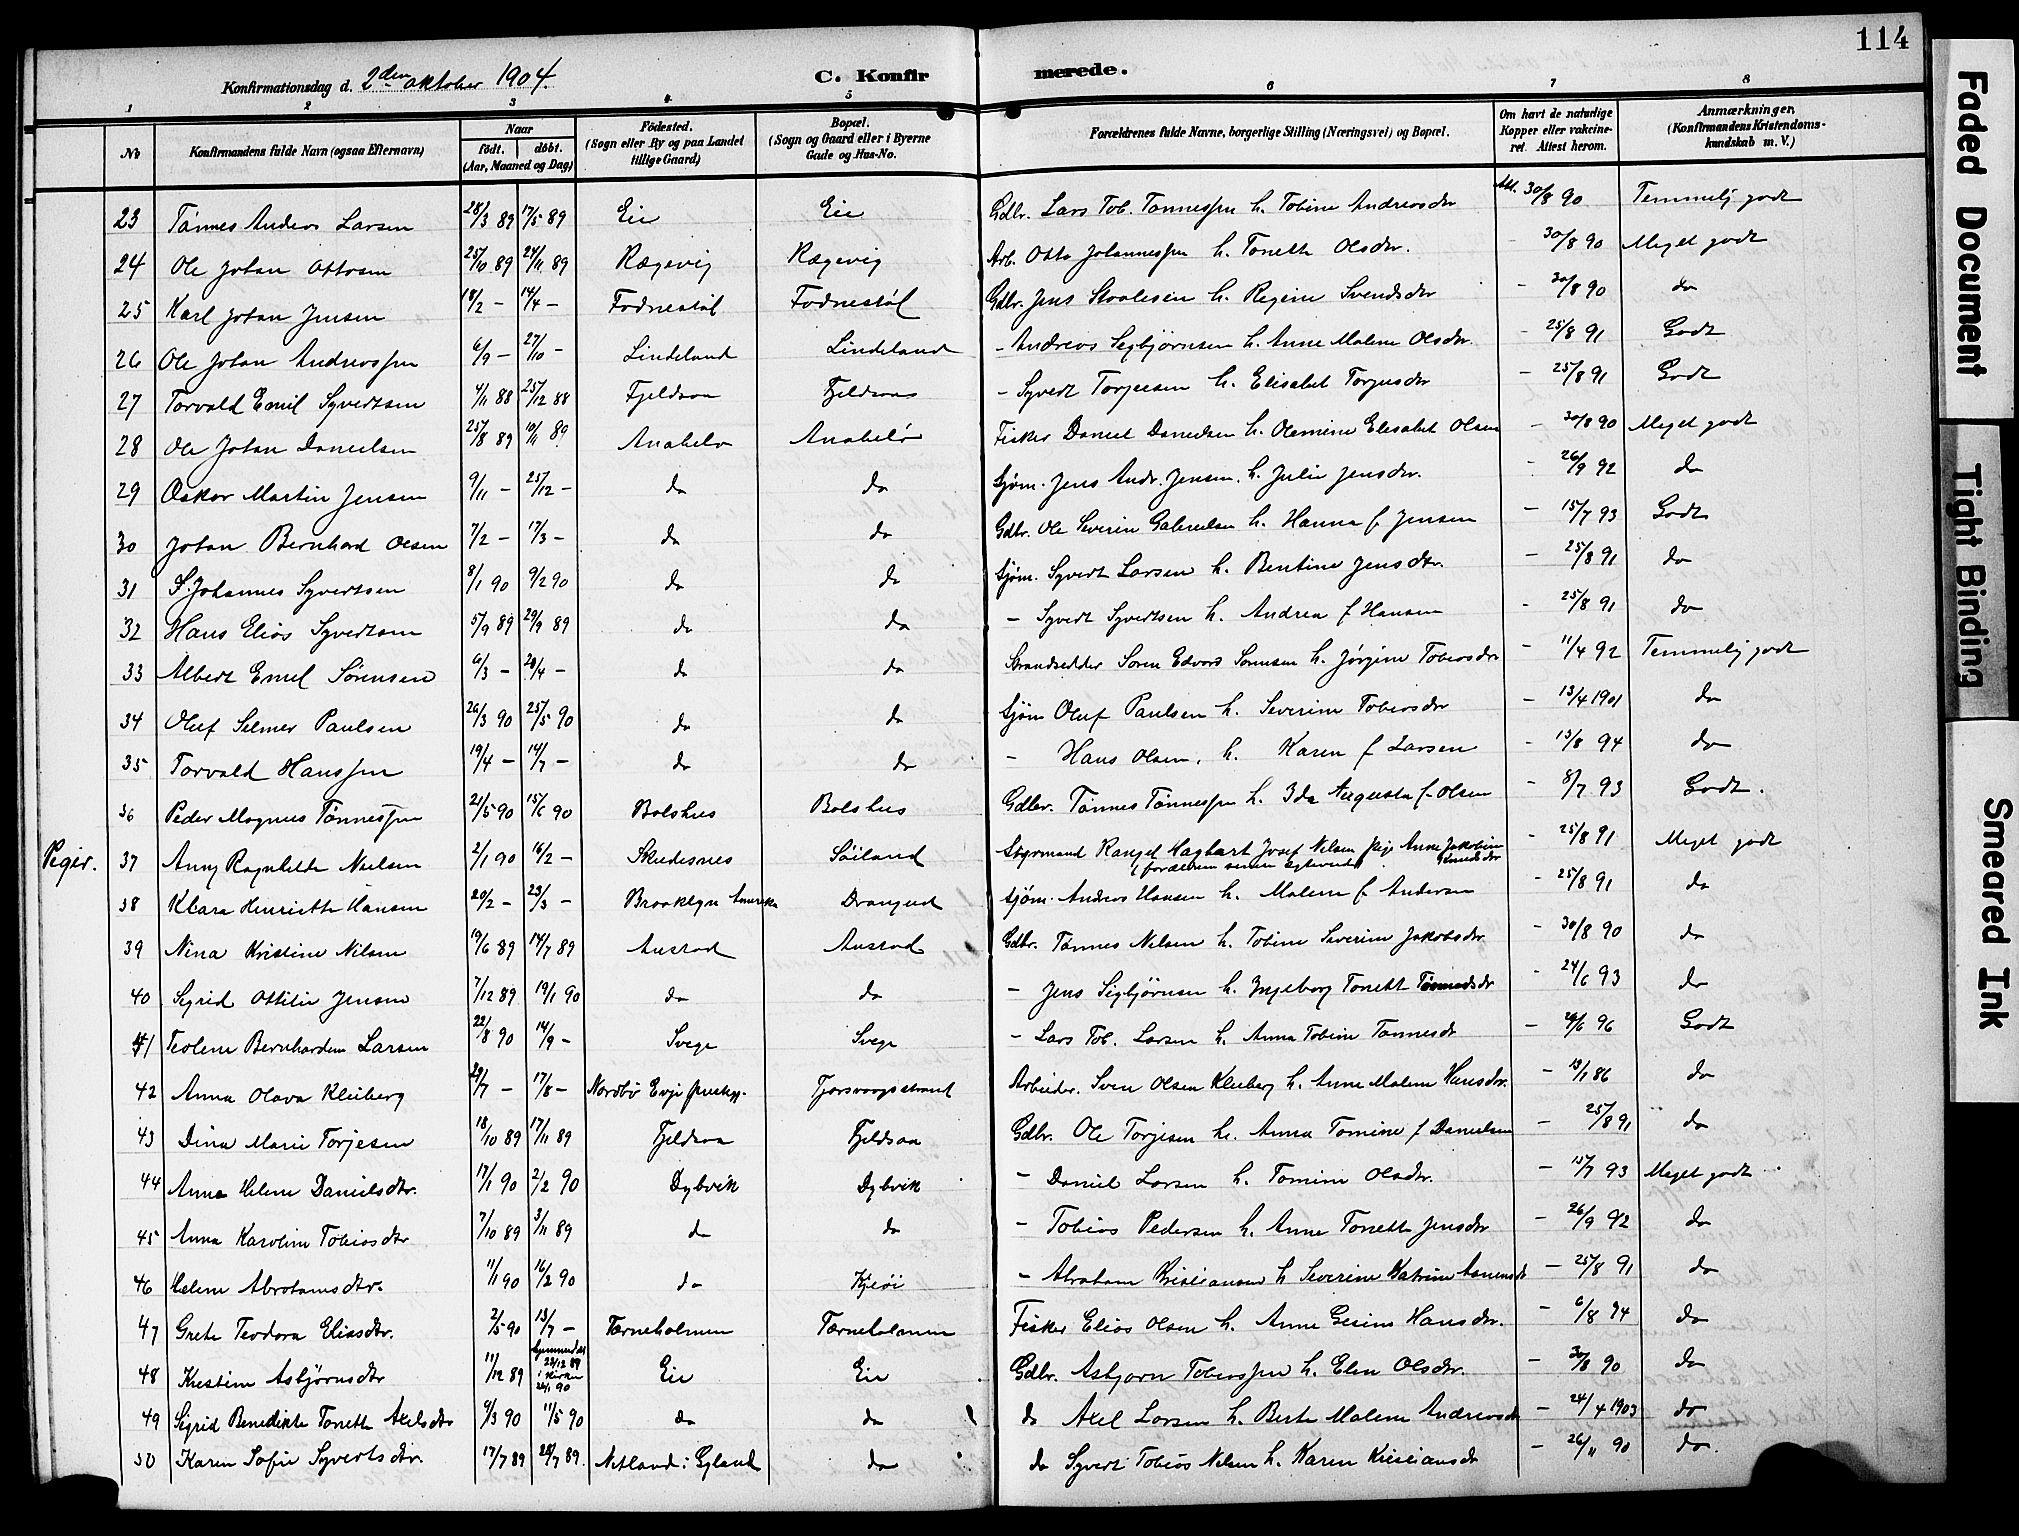 114
Konfirmationsdag d. 2den oktober 1904.
C. Konfirmerede.
1 2 3 4 5 6 7 8
No
Konfirmandens fulde Navn (ogsaa Efternavn)
Naar
födt. döbt.
(Aar, Maaned og Dag)
Födested.
(Sogn eller By og paa Landet
tillige Gaard)
Bopæl.
(Sogn og Gaard eller i Byerne
Gade og Hus-No.
Forældrenes fulde Navne, borgerlige Stilling (Næringsvei) og Bopæl.
Om havt de naturlige
Kopper eller vakcine-
ret. Attest herom.
Anmærkninger.
(Konfirmandens Kristendoms-
kundskab m. V.)
23 Tønnes Andreas Larsen 28/3 89 17/5 89 Eie Eie Gdbr. Lars Tob. Tønnessen h. Tobine Andreasdtr Att. 30/8 90 Temmelig godt
24 Ole Johan Ottosen 25/10 89 24/11 89 Rægevig Rægevig Arb. Otto Johannessen h. Tonette Olsdtr. - 30/8 90 Meget godt
25 Karl Johan Jensen 18/2 - 14/4 - Fodnestöl Fodnestöl Gdbr. Jens Staalesen h. Regine Svendsdtr - 30/8 90 do
26 Ole Johan Andreassen 6/9 - 27/10 - Lindeland Lindeland - Andreas Sigbjørnsen h. Anne Malene Olsdtr. - 25/8 91 Godt
27 Torvald Emil Syvertsen 4/11 88 25/12 88 Fjeldsaa Fjeldsaa - Syvert Torjesen h. Elisabet Torjusdtr - 25/8 91 Godt
28 Ole Johan Danielsen 25/8 89 10/11 89 Anabelø Anabelø Fisker Daniel Danielsen h. Olemine Elisabet Olsen - 30/8 90 Meget godt
29 Oskar Martin Jensen 9/11 - 25/12 - do do Sjøm. Jens Andr. Jensen, h. Julie Jensdtr. - 26/9 92 do
30 Johan Bernhard Olsen 7/2 - 17/3 - do do Gdbr. Ole Severin Gabrielsen h. Hanna f. Jensen - 15/7 93 Godt
31 S. Johannes Syvertsen 8/1 90 9/2 90 do do Sjøm. Syvert Larsen h. Bentine Jensdtr. - 25/8 91 do
32 Hans Elias Syvertsen 5/9 89 29/9 89 do do - Syvert Syvertsen h. Andrea f. Hansen - 25/8 91 do
33 Albert Emil Sørensen 6/3 - 28/4 - do do Strandsidder Søren Edvard Sørensen h. Jørgine Tobiasdtr - 11/4 92 Temmelig godt
34 Oluf Selmer Paulsen 26/3 90 25/5 90 do do Sjøm Oluf Paulsen h. Severine Tobiasdtr - 13/4 1901 do
35 Torvald Hanssen 19/4 - 14/7 - do do - Hans Olsen, h. Karen f. Larsen - 13/8 94 do
36 Peder Magnus Tønnessen 21/5 90 15/6 90 Bolshus Bolshus Gdbr. Tønnes Tønnessen h. Ida Augusta f. Olsen - 8/7 93 Godt.
Piger. 37 Anny Ragnhilde Nielsen 2/1 90 16/2 - Skudesnes Söiland Nielsen pige Anne Jakobine - 25/8 91 Meget godt
38 Klara Henriette Hansen 20/2 - 23/3 - Brooklyn Amerika Drangeid Sjøm. Andreas Hansen h. Malene f. Andersen - 25/8 91 do
39 Nina Kristine Nilsen 19/6 89 14/7 89 Austad Austad Gdbr. Tønnes Nilsen h. Tobine Severine Jakobsdtr - 30/8 90 do
40 Sigrid Ottilie Jensen 7/12 89 19/1 90 do do - Jens Sigbjørnsen h. Ingeborg Tonette Tønnesdtr - 24/6 93 do
41 Teoline Bernhardine Larsen 22/8 90 14/9 - Svege Svege - Lars Tob. Larsen h. Anna Tobine Tønnesdtr - 96 Godt
42 Anna Olava Kleiberg 29/7 - 17/8 - Nordbø Evje Arbeider. Sven Olsen Kleiberg h. Anne Malene Hansdtr. - 86 do
43 Dina Marie Torjesen 18/10 89 17/11 89 Fjeldsaa Fjeldsaa Gdbr. Ole Torjesen h. Anna Tomine f. Danielsen - 25/8 91 do
44 Anne Helene Danielsdtr. 17/1 90 2/2 90 Dybvik Dybvik - Daniel Larsen h. Tomine Olsdtr. - 15/7 93 Meget godt
45 Anna Karoline Tobiasdtr 7/10 89 3/11 89 do do - Tobias Pedersen h. Anne Tonette Jensdtr - 26/9 92 do
46 Helene Abrahamsdtr. 11/1 90 16/2 90 do Kjeöi - Abraham Kristiansen h Severine Katrine - 25/8 91 do
47 Grete Teodora Eliasdtr. 2/5 90 13/7 - Terneholmen Terneholmen Fisker Elias Olsen h. Anne Gesine Hansdtr. - 6/8 94 do
48 Kristine Asbjørnsdtr 11/12 89 hjemmedøbt 22/12 89 i Kirken 26/1 90 Eie Eie Gdbr. Asbjørn Tobiassen h. Elen Olsdtr. - 30/8 90 do
49 Sigrid Benedikte Tonette Axelsdtr 9/3 90 11/5 90 do do do Axel Larsen h. Berte Malene Andreasdtr - 24/4 1903 do
50 Karen Sofie Syvertsdtr. 17/7 89 28/7 89. Netland i Gyland do do Syvert Tobias Nilsen h. Karen Kristiansdtr - 26/11 90 do.
Faded Document
Tight Binding
Smeared Ink